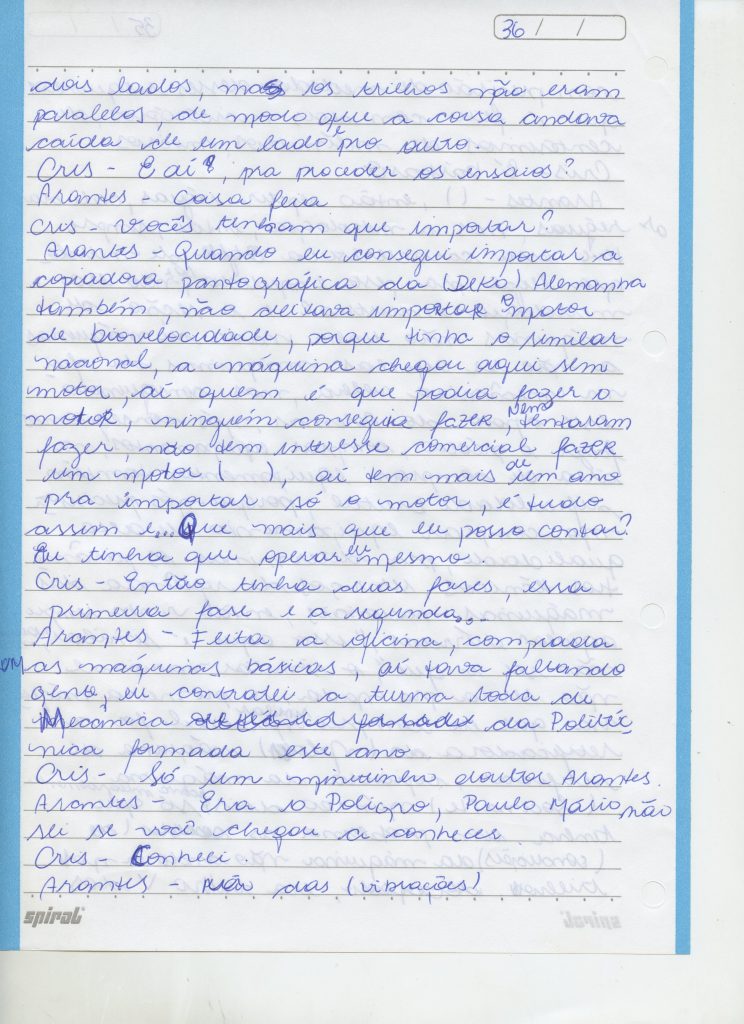 36 / /
dois lados, mas os trilhos não eram
paralelos, de modo que a coisa andava
caída de um lado e pro outro.
Cris - E aí?, pra proceder os ensaios?
Arantes - Coisa feia
Cris - Vocês tinham que importar?
Arantes - Quando eu consegui importar a
copiadora pantográfica da (Deko) Alemanha
também, não deixava importar o motor
de biovelocidade, porque tinha o similar
nacional, a máquina chegou aqui sem
motor, aí quem é que podia fazer o
motor, ninguém conseguia fazer, nem tentaram
fazer, não tem interesse comercial fazer
um motor ( ), aí tem mais de um ano
pra importar só o motor, é tudo
assim e... Que mais que eu posso contar?
Eu tinha que operar eu mesmo.
Cris - Então tinha duas fases, essa
primeira fase e a segunda...
Arantes - Feita a oficina, comprada
as máquinas básicas, aí tava faltando
gente, eu contratei a turma toda de
Mecânica da Politéc
nica formada este ano
Cris - Só um minutinho doutor Arantes.
Arantes - Era o Poligno, Paulo Mário, não
sei se você chegou a conhecer.
Cris - Conheci.
Arantes - das (vibrações)
spiral